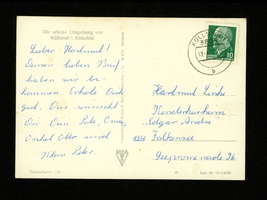 Die schöne Umgebung von
Küllstedt i. Eichsfeld
Lieber Hartmut!
Deinen lieben Brief
haben wir be-
kommen. Erhole Dich
gut. Das wünscht
Dir Dein Pate, Oma
Onkel Otto und
Klein Peter.
KÜLLS
10
b
Hartmut Linke
Kinderkurheim
"Edgar Andre"
1544 Falkensee
Seepromenade 36